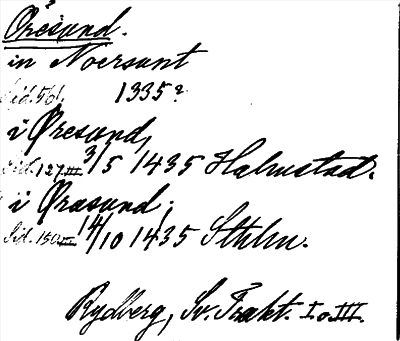 Öresund.
in Noersunt
Sid. 561. 1335?
i Øresund,
Sid. 127 III 3/5 1435 Halmstad.
i Øræsund,
Sid. 150 III 14/10 1435 Sthlm.
Rydberg, Sv. Trakt. I o. III.